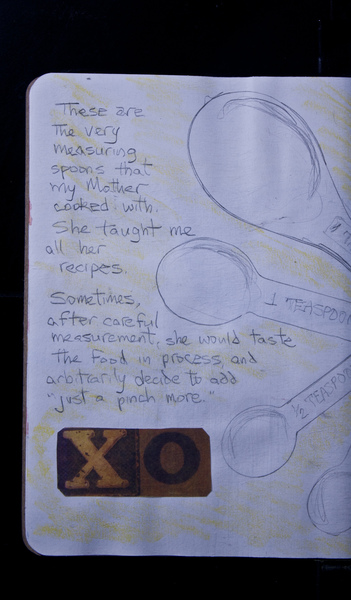 These are
The very
measuring
spoons that
my Mother
cooked with.
She taught me
all her
recipes.
Sometimes,
after careful
measurement, she would taste
The food in process, and
arbitrarily decide to add
"just a pinch more."
1 TEASPOON
1/2 TEASPO
X O